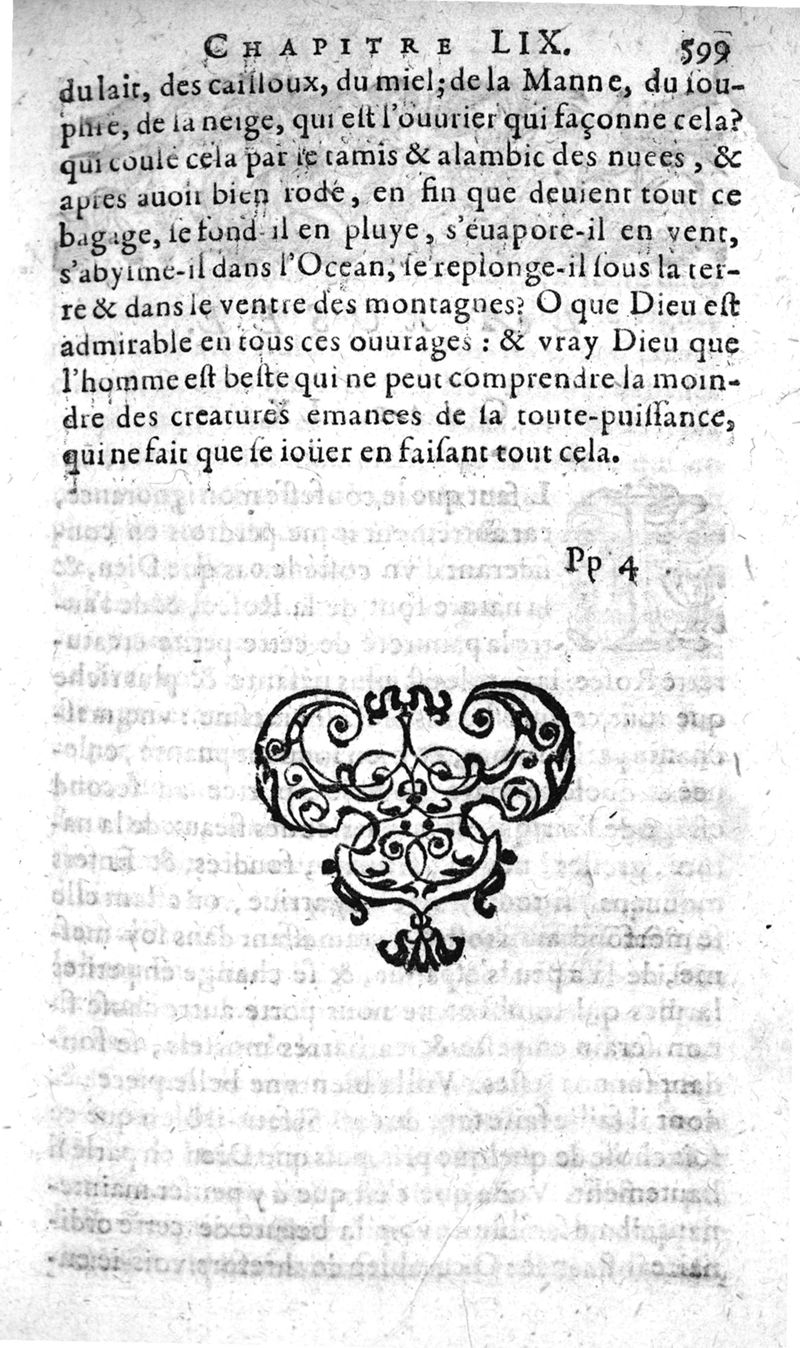 CHAPITRE LIX. 599
du lait, des cailloux, du miel; de la Manne, du ſou-
phre, de la neige, qui eſt l'ouurier qui façonne cela?
qui coule cela par le tamis & alambic des nuées, &
apres auoir bien rodé, en fin que deuient tout ce
bagage, ſe fond-il en pluye, s'éuapore-il en vent,
s'abyſme-il dans l'Ocean, ſe replonge-il ſous la ter-
re & dans le ventre des montagnes? O que Dieu eſt
admirable en tous ces ouurages : & vray Dieu que
l'homme eſt beſte qui ne peut comprendre la moin-
dre des creatures émanées de ſa toute-puiſſance,
qui ne fait que ſe ioüer en faiſant tout cela.
Pp 4